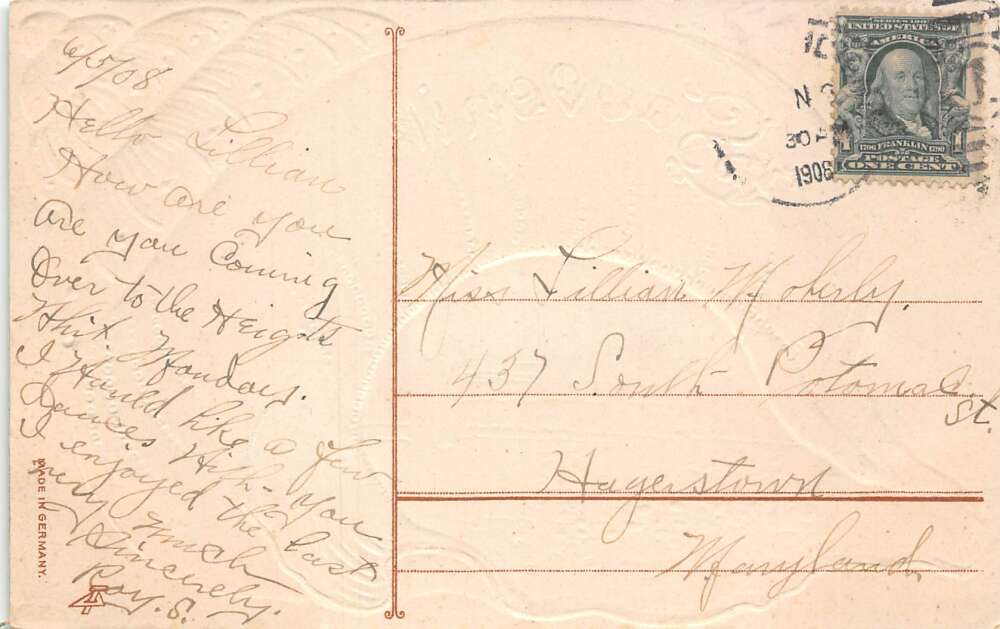 6/5/08
Hello Lillian
How are you
are you Coming
Over to the Heights
Whit. Monday.
I Would like a few
dances With-you
I enjoyed the last
very much
Sincerely.
Roy. S.
MADE IN GERMANY.
SERIES 1902
UNITED STATES OF
AMERICA
1706 FRANKLIN 1790
POSTAGE
1 ONE CENT 1
30 A
1908
Miss Lillian Moberly.
437 South Potomac
st.
Hagerstown
Maryland.